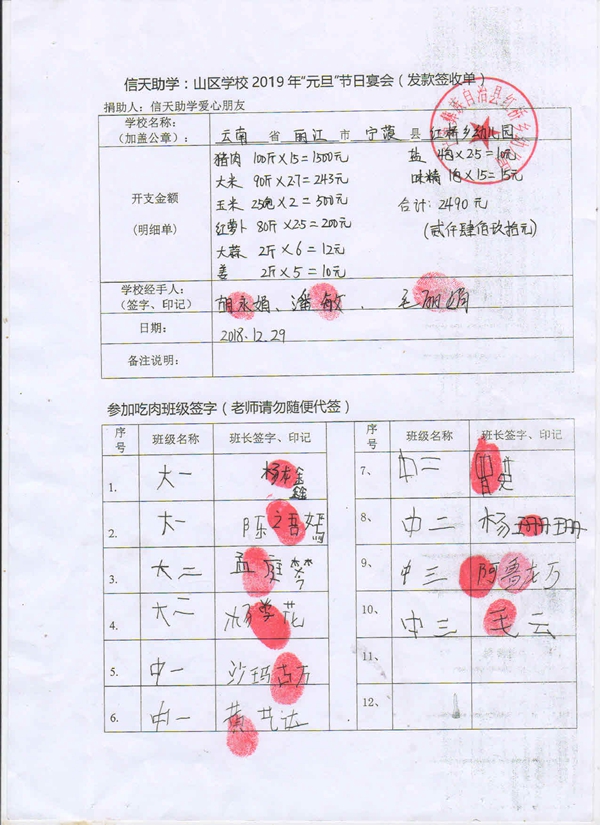 信天助学：山区学校2019年“元旦”节日宴会（发款签收单）
捐助人：信天助学爱心朋友
学校名称：
（加盖公章）： 云南 省 丽江 市 宁蒗 县 红桥乡幼儿园
开支金额
(明细单)
猪肉 100斤×15=1500元
大米 90斤×2.7=243元
玉米 250包×2=500元
红萝卜 80斤×2.5=200元
大蒜 2斤×6=12元
姜 2斤×5=10元
盐 4包×2.5=10元
味精 1包×15=15元
合计：2490元
(贰仟肆佰玖拾元)
学校经手人：
（签字、印记）
胡永娟、潘敏、毛丽娟
日期：
2018.12.29
备注说明：
参加吃肉班级签字（老师请勿随便代签）
序号 班级名称 班长签字、印记
1. 大一 杨
2. 大一 陈语嫣
3. 大二 孟庭
4. 大二 杨学花
5. 中一 沙玛古万
6. 中一 黄
序号 班级名称 班长签字、印记
7、 中二
8、 中二 杨珊珊
9、 中三 阿鲁龙万
10、 中三 毛云
11、
12、